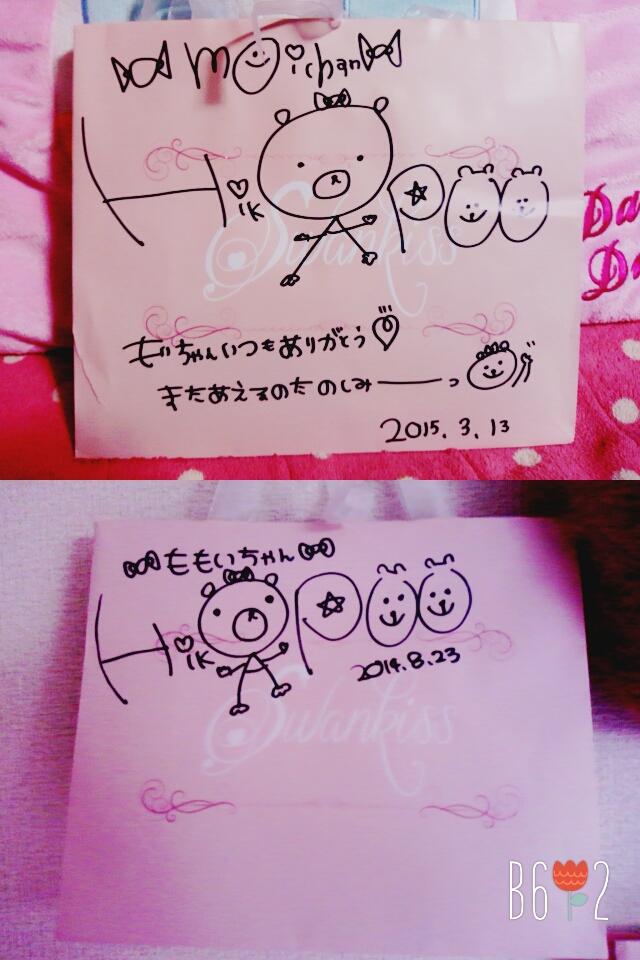 Moichan
Hikapoo
Swankiss
もいちゃんいつもありがとう
またあえるのたのしみーっ
2015.3.13
Da
Da
ももいちゃん
Hikapoo
2014.8.23
Swankiss
B612